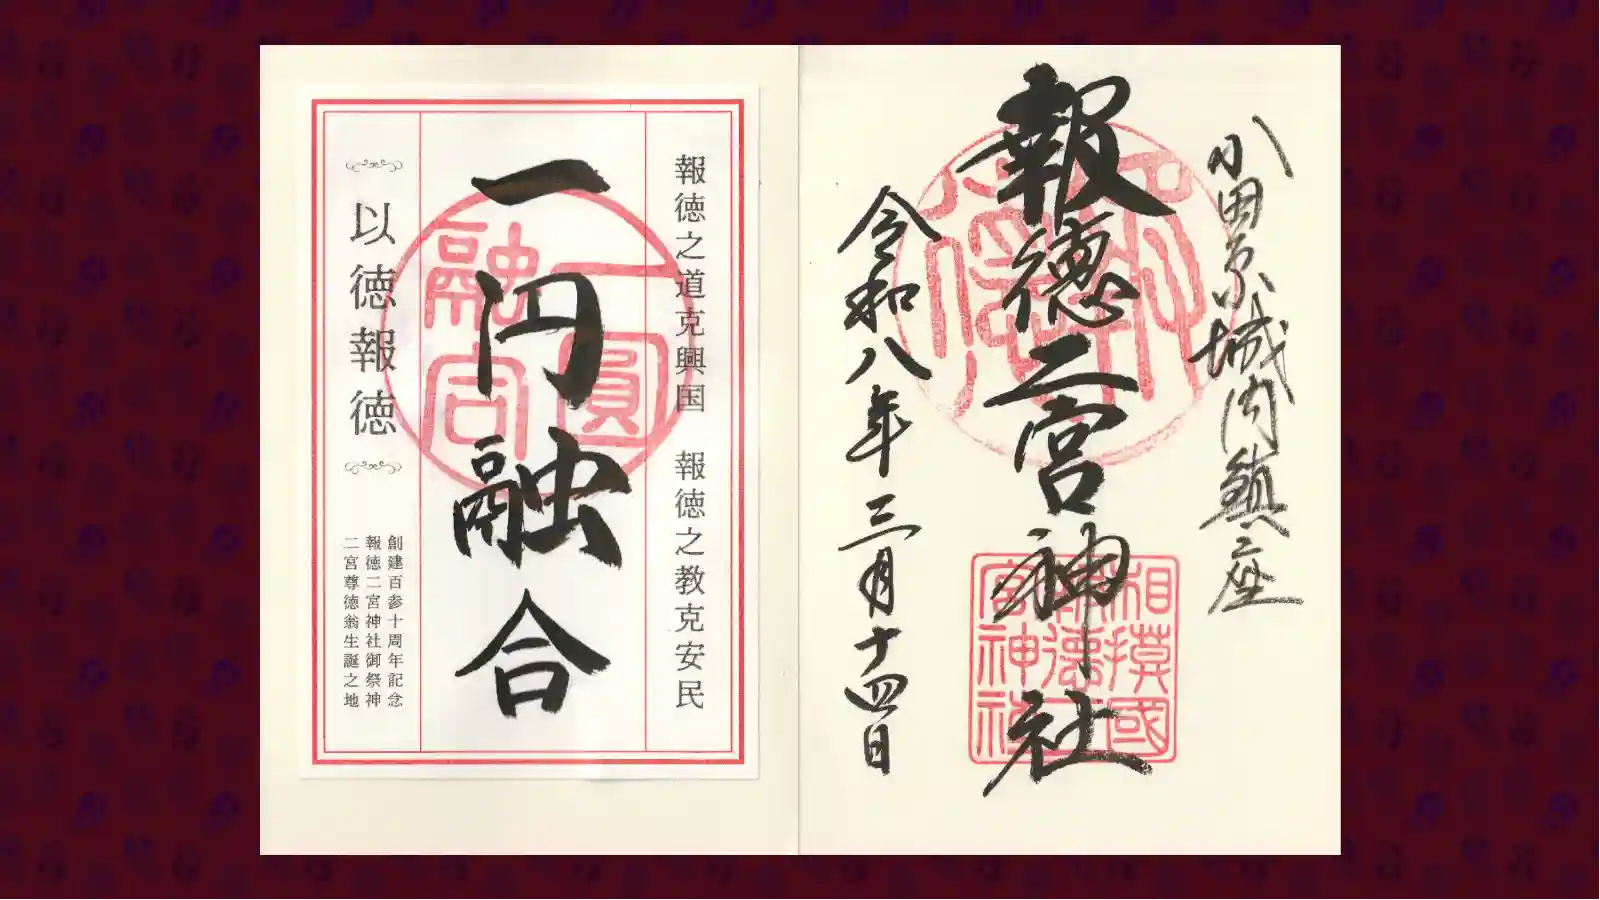 小田原城内鎮座
報徳二宮神社
令和八年三月十四日
相摸國
報徳二
宮神社
報徳
報徳之道克興国 報徳之教克安民
一円融合
一圓
融合
以徳報徳
創建百参十周年記念
報徳二宮神社御祭神
二宮尊徳翁生誕之地